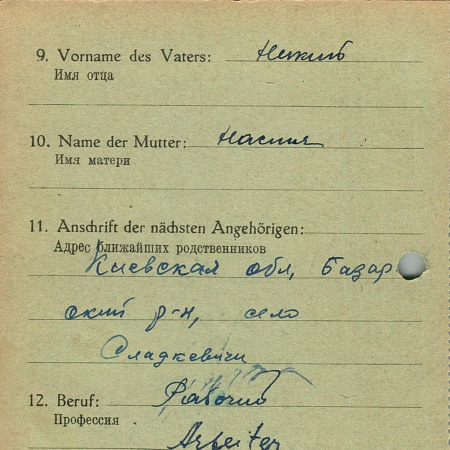 9. Vorname des Vaters: Никит
Имя отца
10. Name der Mutter: Настия
Имя матери
11. Anschrift der nächsten Angehörigen:
Адрес ближайших родственников
Киевская обл, Базар-
ский р-н, село
Сладкевичи
12. Beruf: Рабочий
Профессия
Arbeiter